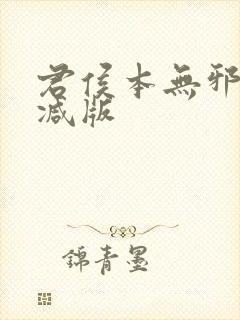 君侯本無邪
减版
錦青墨